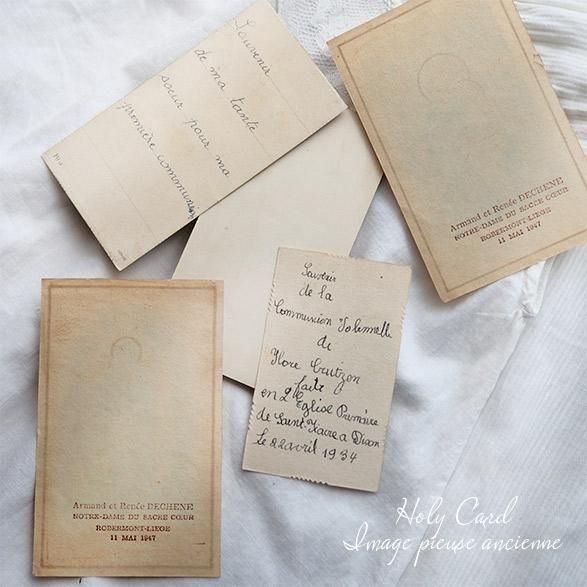 Souvenir
de ma tante
soeur pour ma
première communion
Armand et Renée DECHENE
NOTRE-DAME DU SACRE CŒUR
ROBERMONT-LIEGE
11 MAI 1947
Souvenir
de la
Communion Solennelle
de
Flore
faite
en l'Eglise Primaire
de Saint
le 22 avril 1934
Armand et Renée DECHENE
NOTRE-DAME DU SACRE CŒUR
ROBERMONT-LIEGE
11 MAI 1947
Holy Card
Image pieuse ancienne